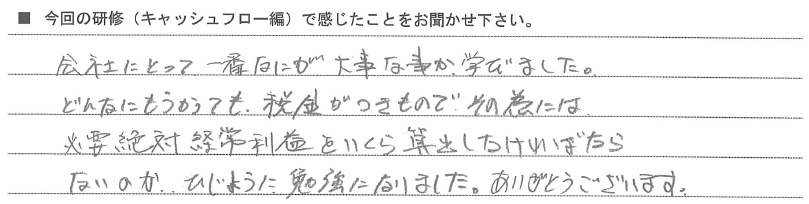 ■ 今回の研修（キャッシュフロー編）で感じたことをお聞かせ下さい。
会社にとって一番なにが大事な事か、学びました。
どんなにもうかっても、税金がつきもので その為には
必要絶対経常利益をいくら算出しなければなら
ないのか、ひじょうに勉強になりました。ありがとうございます。